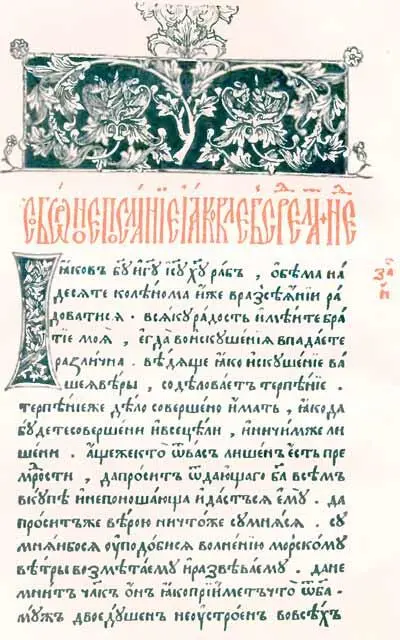 ꙗковъ бг҃у и гу і҃у ху рабъ , обѣма на
десѧте колѣнома иже вразсѣѧнїи ра
доватисѧ . всѧку радость имѣите бра
тїе моѧ , егда во искушенїѧ впадаете
различна . вѣдѧще ꙗко искушенїе ва
шеѧ вѣры , содѣловаетъ терпѣнїе .
терпѣнїеже дѣло совершено имать , ꙗкода
будете совершени ивсецѣли , иничимже ли
шени . ащежекто ѿвасъ лишенъ есть пре
мрости , дапроситъ ѿдающаго ба всѣмъ
вкупѣ инепоношающа идастьсѧ ему . да
проситъже вѣрою ничтоже сумнѧсѧ . су
мнѧибосѧ оуподобисѧ волненїю морскому
вѣтры возметаему иразвѣваему . дане
мнитъ члкъ онъ ꙗкопрїиметъчто ѿба .
мужъ двоедушенъ неустроенъ вовсѣхъ